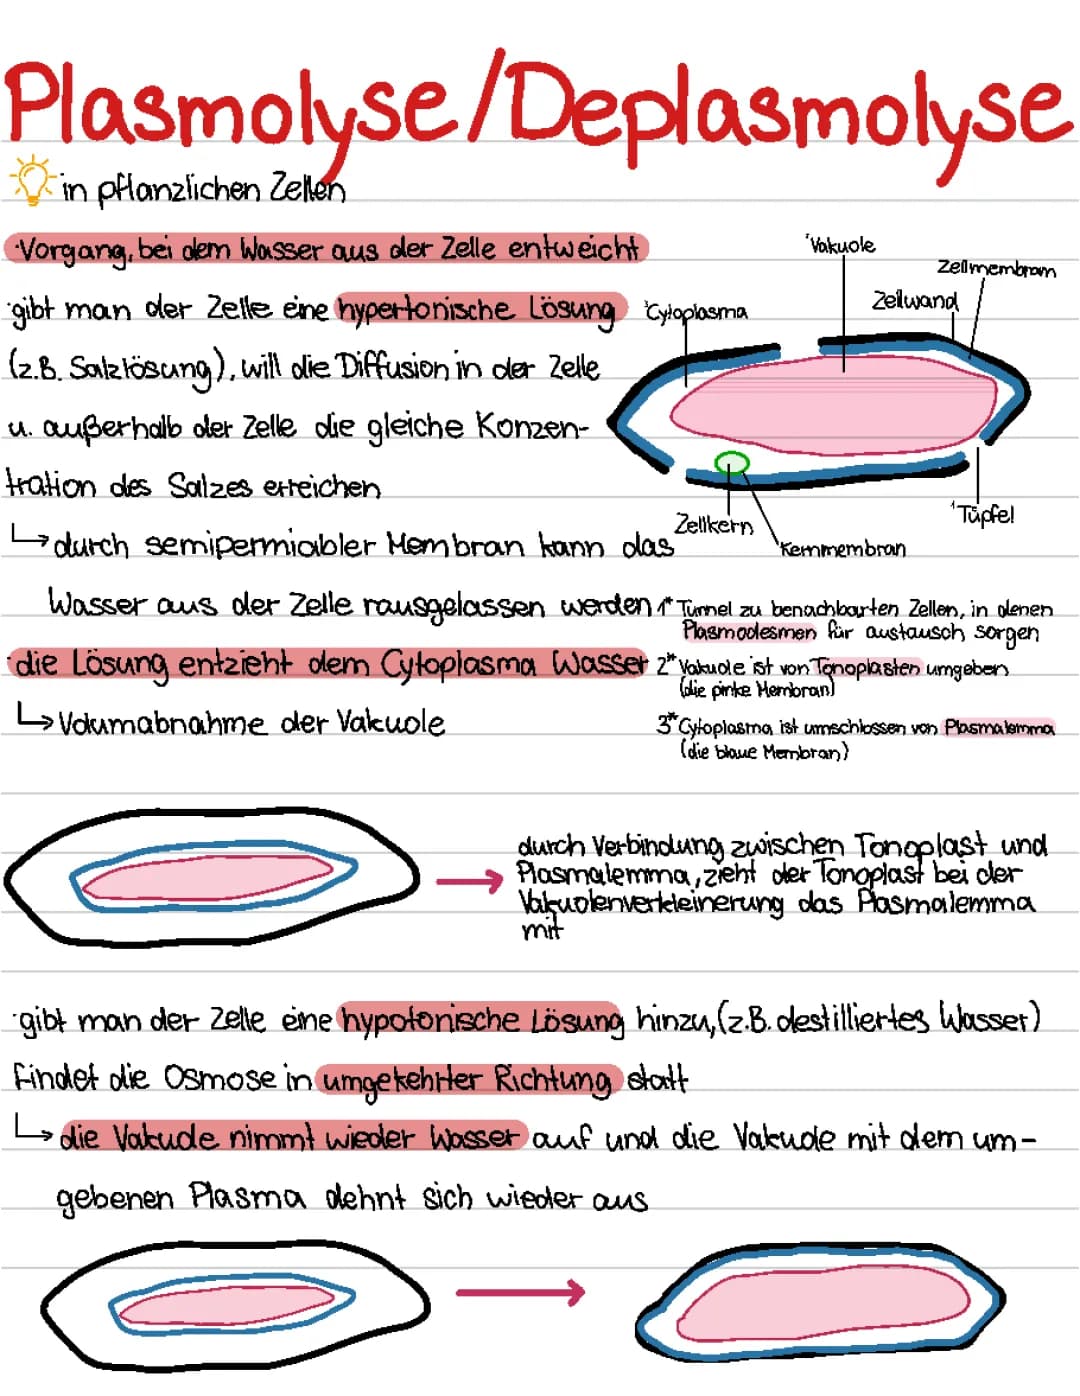 Plasmolyse/Deplasmolyse
in pflanzlichen Zellen
·Vorgang, bei dem Wasser aus der Zelle entweicht
·gibt man der Zelle eine hypertonische Lösung
(z.B. Salzlösung), will die Diffusion in der Zelle
u. außerhalb der Zelle die gleiche Konzen-
tration des Salzes erreichen
↳ durch semipermiabler Membran kann das
Wasser aus der Zelle rausgelassen werden
·die Lösung entzieht dem Cytoplasma Wasser
↳ Volumabnahme der Vakuole
²Vakuole
Zellmembram
Zellwand
³Cytoplasma
Zellkern
Kernmembran
¹Tüpfel
1* Tunnel zu benachbarten Zellen, in denen
Plasmodesmen für austausch sorgen
2* Vakuole ist von Tonoplasten umgeben
(die pinke Membran)
3* Cytoplasma ist umschlossen von Plasmalemma
(die blaue Membran)
durch Verbindung zwischen Tonoplast und
Plasmalemma, zieht der Tonoplast bei der
Vakuolenverkleinerung das Plasmalemma
mit
·gibt man der Zelle eine hypotonische Lösung hinzu, (z.B. destilliertes Wasser)
findet die Osmose in umgekehrter Richtung statt
↳ die Vakuole nimmt wieder Wasser auf und die Vakuole mit dem um-
gebenen Plasma dehnt sich wieder aus